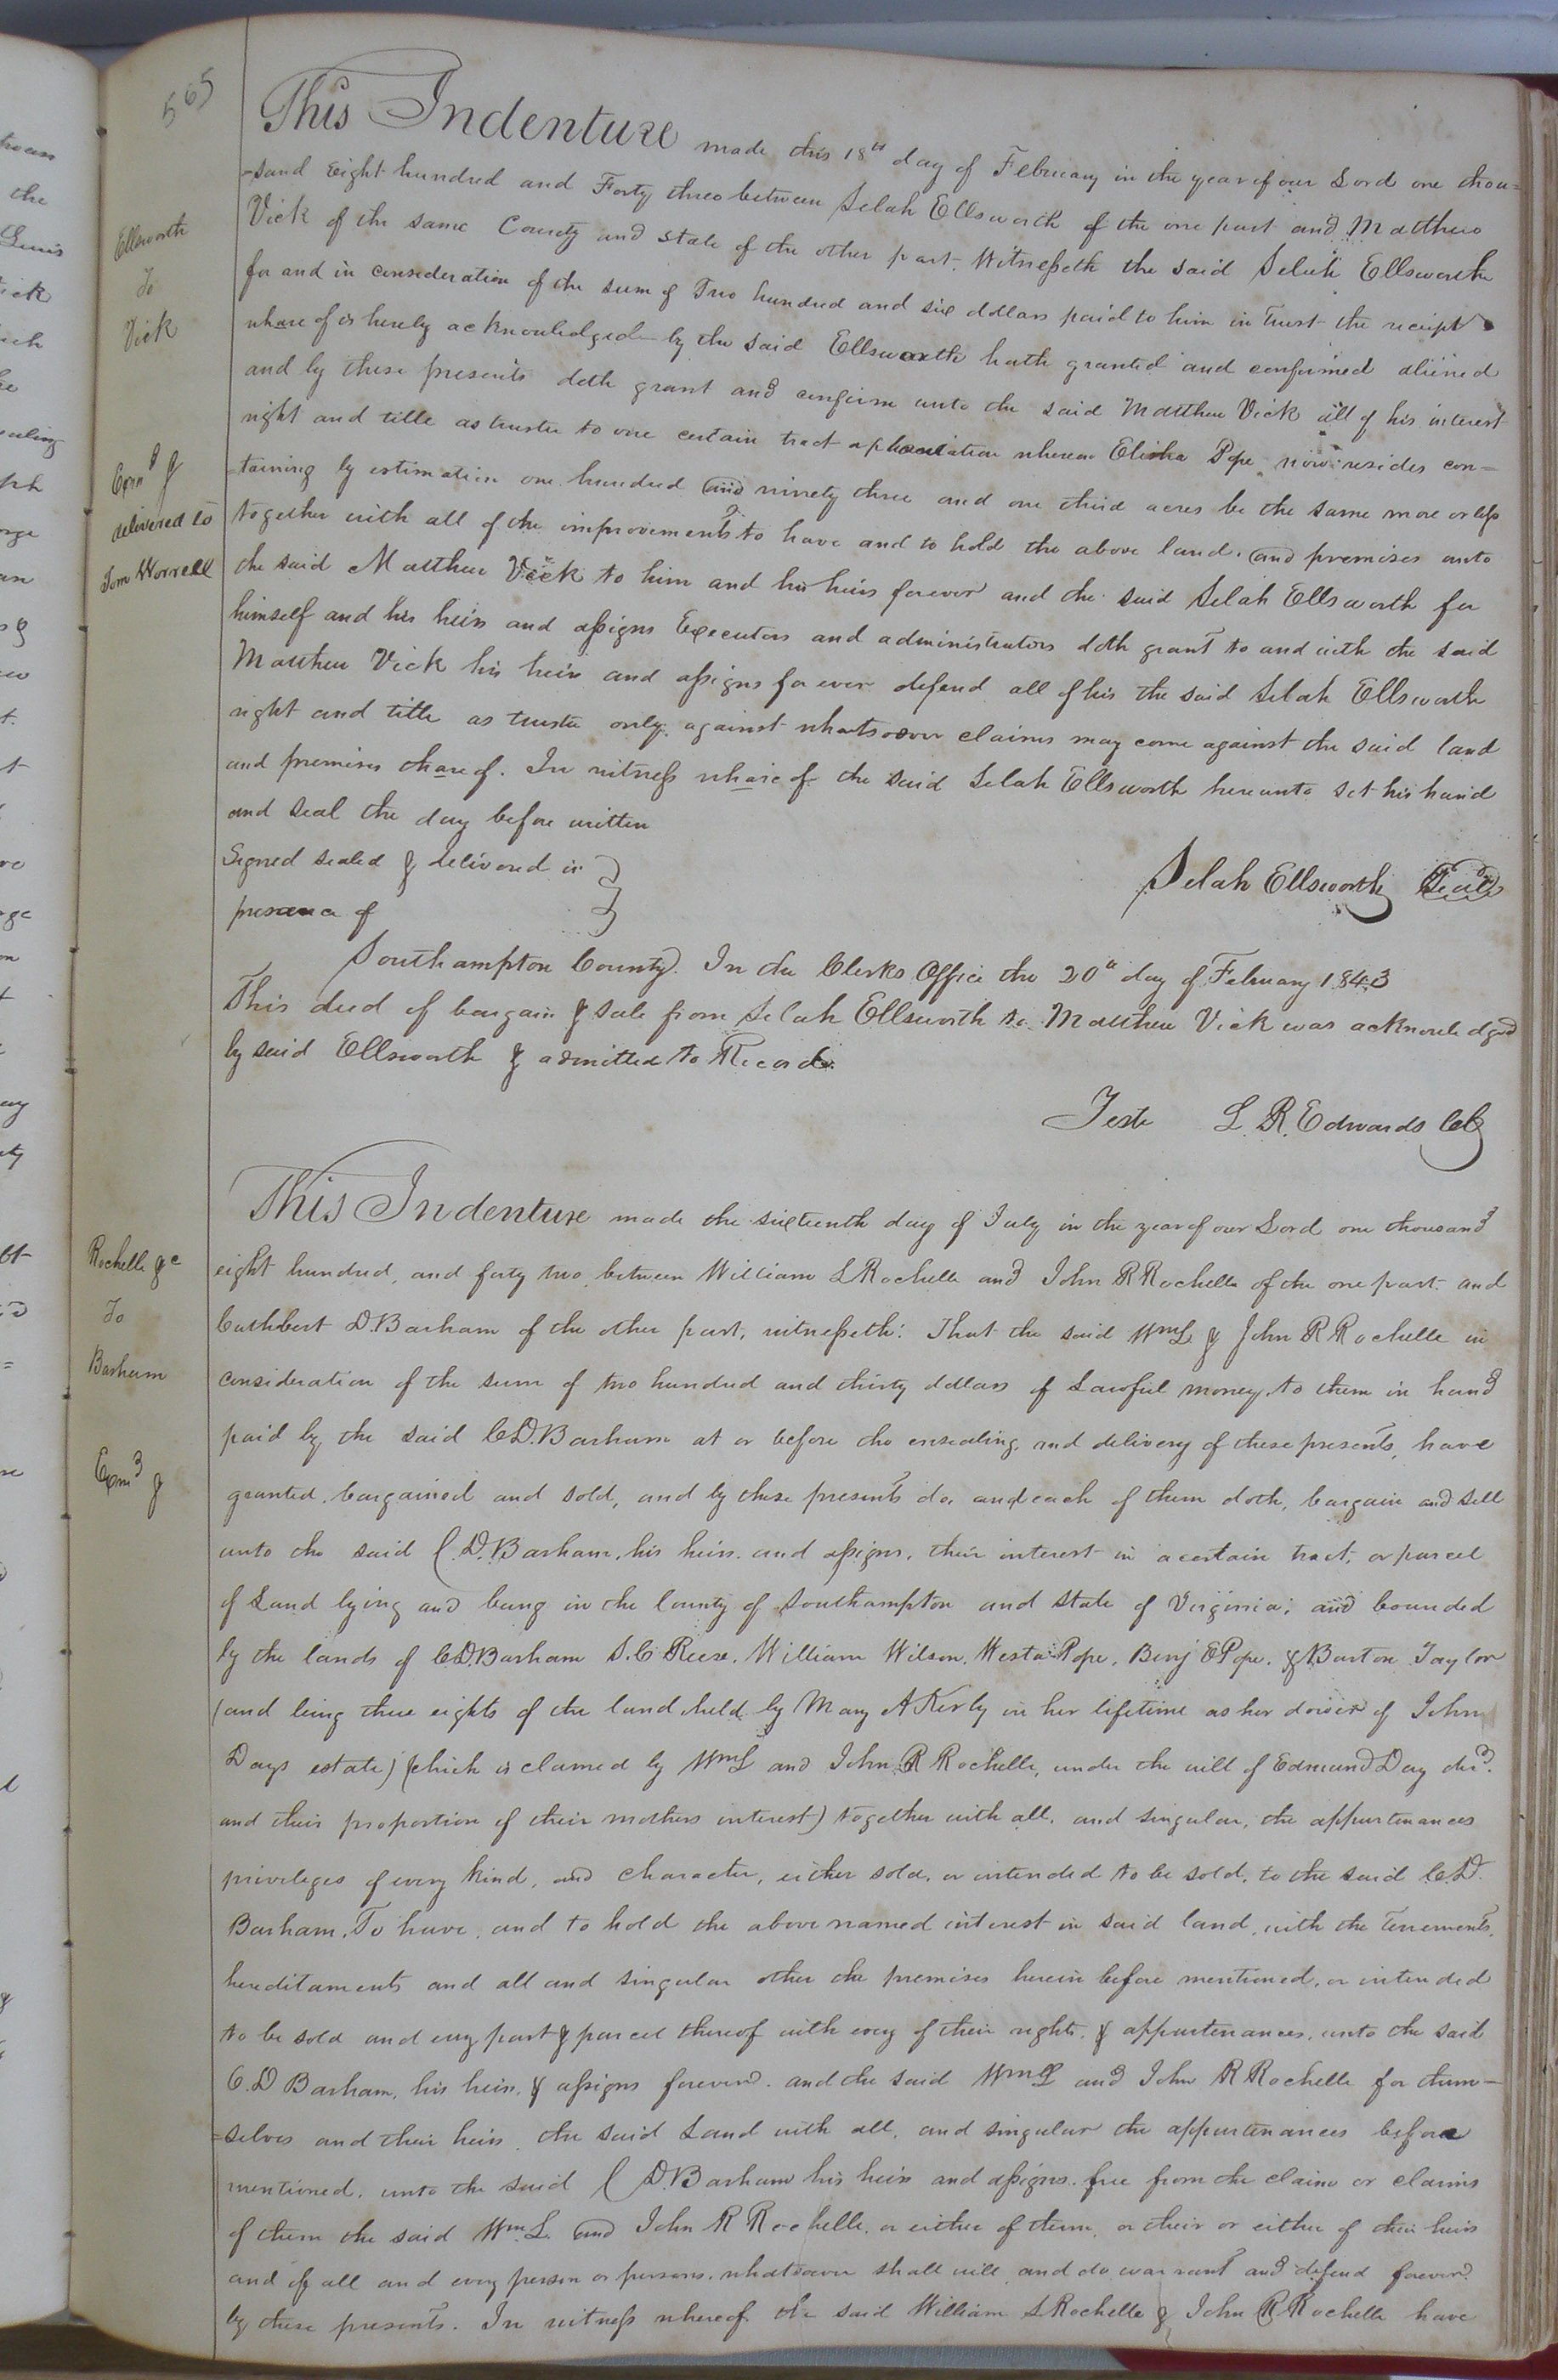 565
This Indenture made this 18th day of February in the year of our Lord one thou=
=sand Eight hundred and Forty three between Selah Ellsworth of the one part and Matthew
Vick of the same County and State of the other part. Witnesseth the said Selah Ellsworth
for and in consideration of the sum of Two hundred and six dollars paid to him in Trust the receipt
whareof is hereby acknowledged by the said Ellsworth hath granted and confirmed aliened
and by these presents doth grant and confirm unto the said Matthew Vick all of his interest
right and title as trustee to one certain tract a plantation whereon Elisha Pope now resides con=
=taining by estimation one hundred and ninety three and one third acres be the same more or less
together with all of the improvements to have and to hold the above land and premises unto
the said Matthew Vick to him and his heirs forever and the said Selah Ellsworth for
himself and his heirs and assigns Executors and administrators doth grant to and with the said
Matthew Vick his heirs and assigns for ever defend all of his the said Selah Ellsworth
right and title as trustee only against whatsoever claims may come against the said land
and premises thareof. In witness whareof the said Selah Ellsworth hereunto set his hand
and seal the day before written
Signed sealed & delivered in
presence of
Selah Ellsworth Seal
Southampton County. In the Clerks Office the 20th day of February 1843
This deed of bargain & sale from Selah Ellsworth to Matthew Vick was acknowledged
by said Ellsworth & admitted to Record.
Teste L. R. Edwards Clk
Ellsworth
To
Vick
Exmd &
delivered to
Tom Worrell
This Indenture made the sixteenth day of July in the year of our Lord one thousand
eight hundred, and forty two, between William L Rochelle and John R Rochelle of the one part and
Cuthbert D. Barham of the other part, witnesseth: That the said Wm L. & John R Rochelle in
consideration of the sum of two hundred and thirty dollars of Lawful money, to them in hand
paid by the said C.D. Barham at or before the ensealing and delivery of these presents, have
granted, bargained and sold, and by these presents do, and each of them doth, bargain and sell
unto the said C. D. Barham, his heirs and assigns, their interest in a certain tract, or parcel
of Land lying and being in the County of Southampton and State of Virginia; and bounded
by the lands of C.D. Barham S. C Reese, William Wilson, Pope, Benj E Pope, & Barton Taylor
(and being three eights of the land held by Mary A Kerby in her lifetime as her dower of John
Days estate) (which is clamed by Wm L and John R Rochelle, under the will of Edmund Day decd.
and their proportion of their mothers interest) together with all, and singular, the appurtenances
privileges of every kind, and character, either sold, or intended to be sold, to the said C.D.
Barham, To have, and to hold the above named interest in said land, with the Tenements,
hereditaments and all and singular other the premises herein before mentioned, or intended
to be sold and evry part & parcel thereof with every of their rights, & appurtenances, unto the said
C. D Barham, his heirs, & assigns forever. and the said Wm L and John R Rochelle for them=
=selves and their heirs, the said Land with all, and singular the appurtenances before
mentioned, unto the said C D. Barham his heirs and assigns, free from the claim or claims
of them the said Wm. L. and John R Rochelle, or either of them, or their or either of their heirs
and of all and every person or persons, whatsoever shall will, and do warrant and defend forever
by these presents. In witness whereof the said William L Rochelle & John R Rochelle have
Rochelle &c
To
Barham
Exmd &